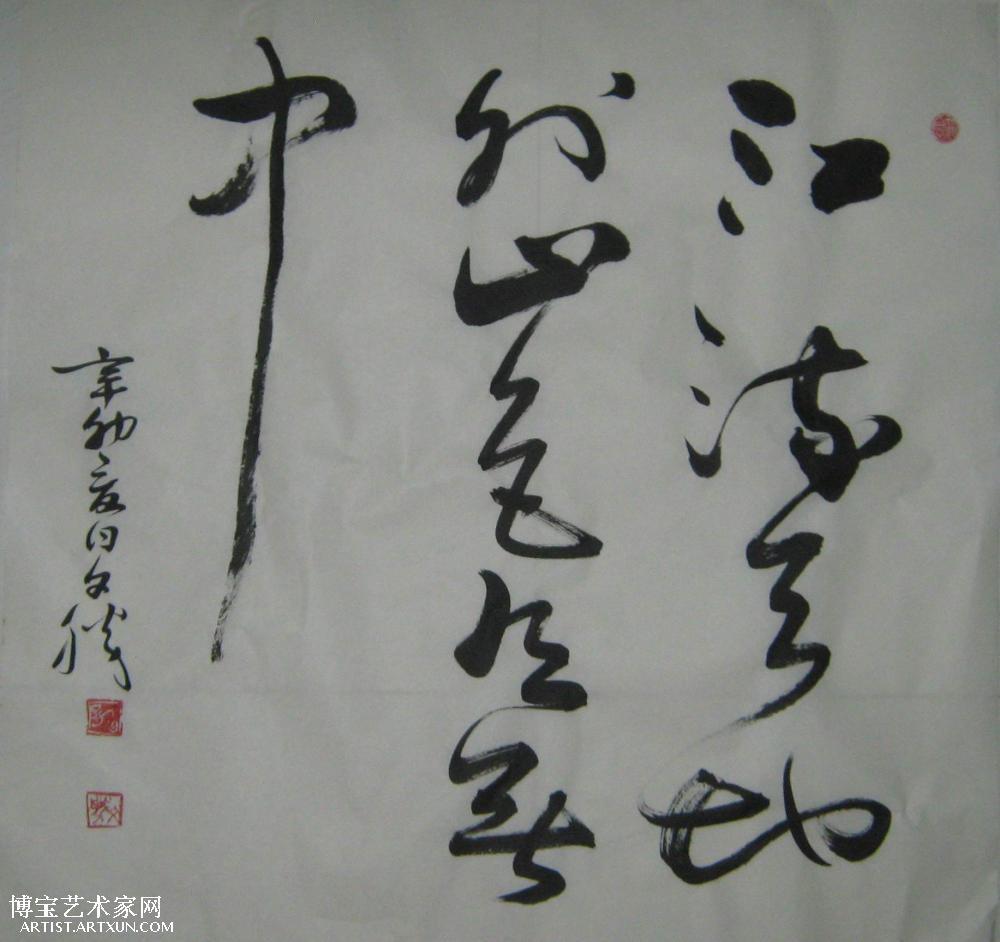 江流天地
外山色有無
中
辛卯夏日文勝
博宝艺术家网
ARTIST.ARTXUN.COM